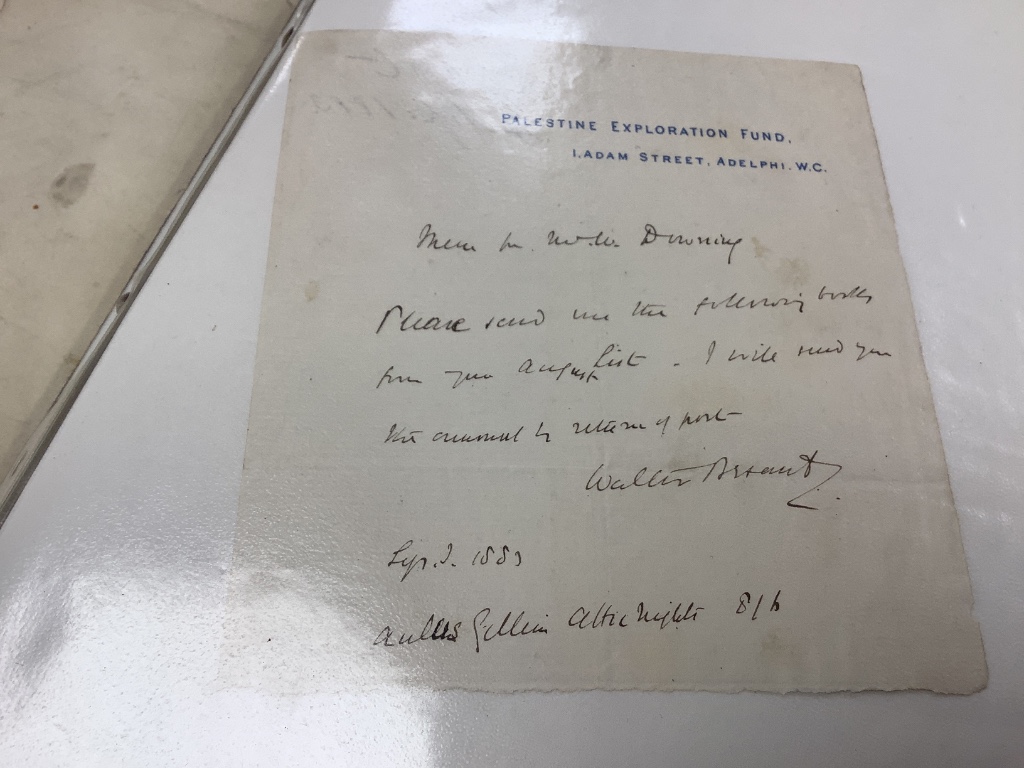 PALESTINE EXPLORATION FUND,
1, ADAM STREET, ADELPHI. W.C.
Mem for Mr. W. Downing
Please send me the following books
from your August list. I will send you
the amount by return of post
Walter Besant
Sep. 3. 1883
Aulus Gellius Attic Nights 8/6